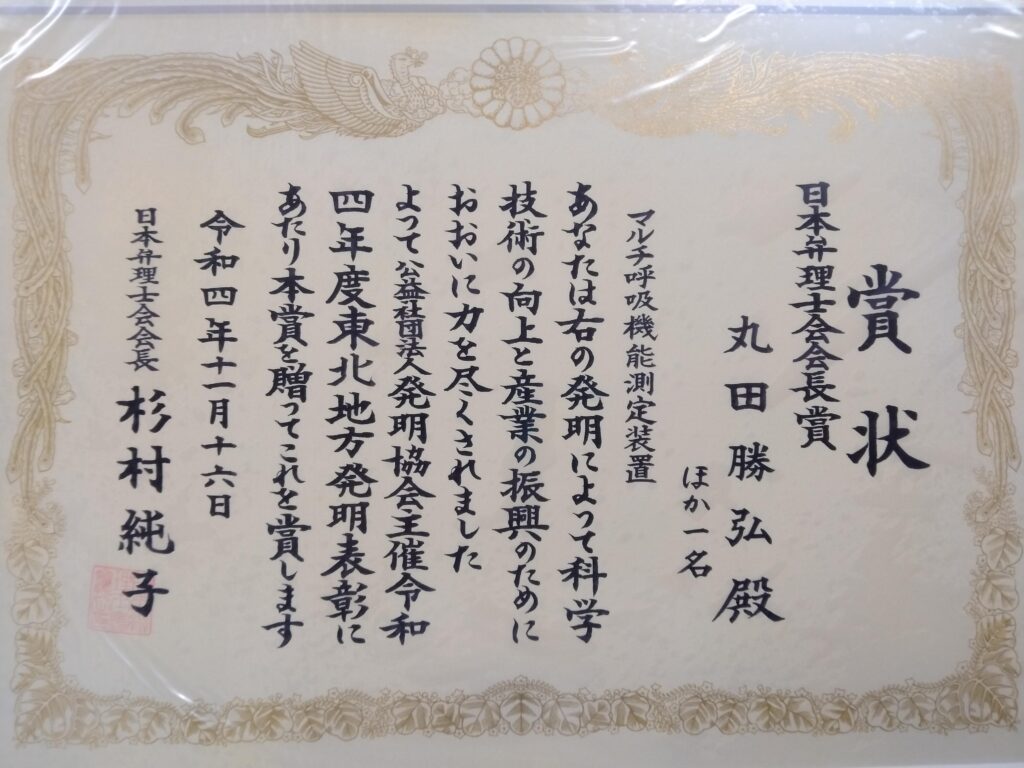 賞状
日本弁理士会会長賞
丸田勝弘殿
ほか一名
マルチ呼吸機能測定装置
あなたは右の発明によって科学
技術の向上と産業の振興のために
おおいに力を尽くされました
よって公益社団法人発明協会主催令和
四年度東北地方発明表彰に
あたり本賞を贈ってこれを賞します
令和四年十一月十六日
日本弁理士会会長 杉村純子